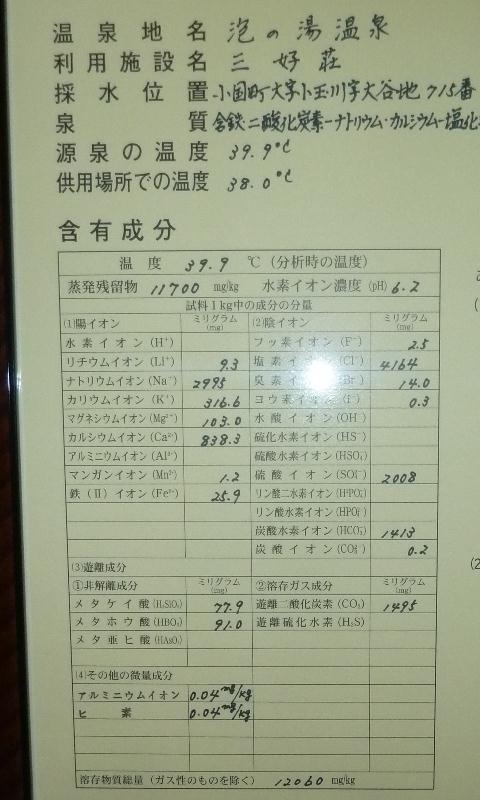 温泉地名 泡の湯温泉
利用施設名 三好荘
採水位置 小国町大字小玉川字大谷地715番
泉質 含鉄-二酸化炭素-ナトリウム・カルシウム-塩化
源泉の温度 39.9℃
供用場所での温度 38.0℃
含有成分
温度 39.9 ℃(分析時の温度)
蒸発残留物 11700 mg/kg 水素イオン濃度(pH) 6.2
試料1kg中の成分の分量
(1)陽イオン ミリグラム(mg) (2)陰イオン ミリグラム(mg)
水素イオン(H⁺) フッ素イオン(F⁻) 2.5
リチウムイオン(Li⁺) 9.3 塩素イオン(Cl⁻) 4164
ナトリウムイオン(Na⁺) 2995 臭素イオン(Br⁻) 14.0
カリウムイオン(K⁺) 316.6 ヨウ素イオン(I⁻) 0.3
マグネシウムイオン(Mg²⁺) 103.0 水酸イオン(OH⁻)
カルシウムイオン(Ca²⁺) 838.3 硫化水素イオン(HS⁻)
アルミニウムイオン(Al³⁺) 硫酸水素イオン(HSO₄⁻)
マンガンイオン(Mn²⁺) 1.2 硫酸イオン(SO₄²⁻) 2008
鉄(Ⅱ)イオン(Fe²⁺) 25.9 リン酸二水素イオン(H₂PO₄⁻)
リン酸水素イオン(HPO₄²⁻)
炭酸水素イオン(HCO₃⁻) 1413
炭酸イオン(CO₃²⁻) 0.2
(3)遊離成分
①非解離成分 ミリグラム(mg) ②溶存ガス成分 ミリグラム(mg)
メタケイ酸(H₂SiO₃) 77.9 遊離二酸化炭素(CO₂) 1495
メタホウ酸(HBO₂) 91.0 遊離硫化水素(H₂S)
メタ亜ヒ酸(HAsO₂)
(4)その他の微量成分
アルミニウムイオン 0.04mg/kg
ヒ素 0.04mg/kg
溶存物質総量(ガス性のものを除く) 12060 mg/kg